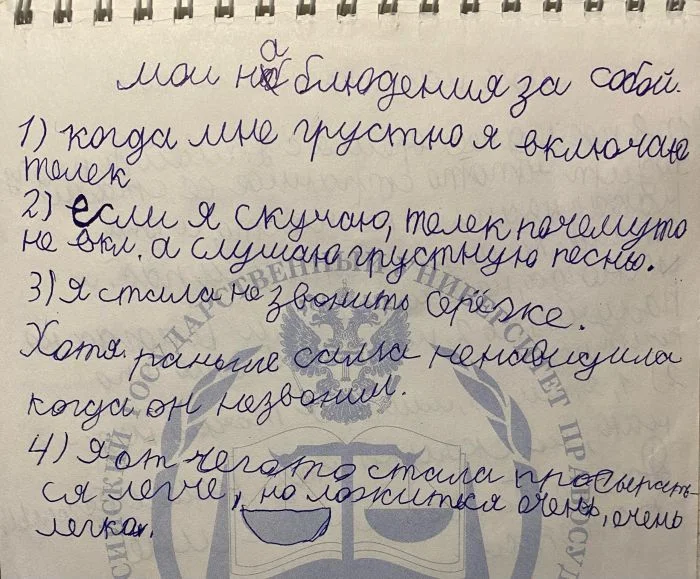 мои наблюдения за собой.
1) когда мне грустно я включаю
телек
2) если я скучаю, телек почемуто
не вкл. а слушаю грустную песню.
3) Я стала не звонить Серёже.
Хотя раньше сама ненавидила
когда он незвонил.
4) Я от чегото стала просыпать
ся легче, но ложиться очень, очень
легко.
РОССИЙСКИЙ ГОСУДАРСТВЕННЫЙ УНИВЕРСИТЕТ ПРАВОСУД